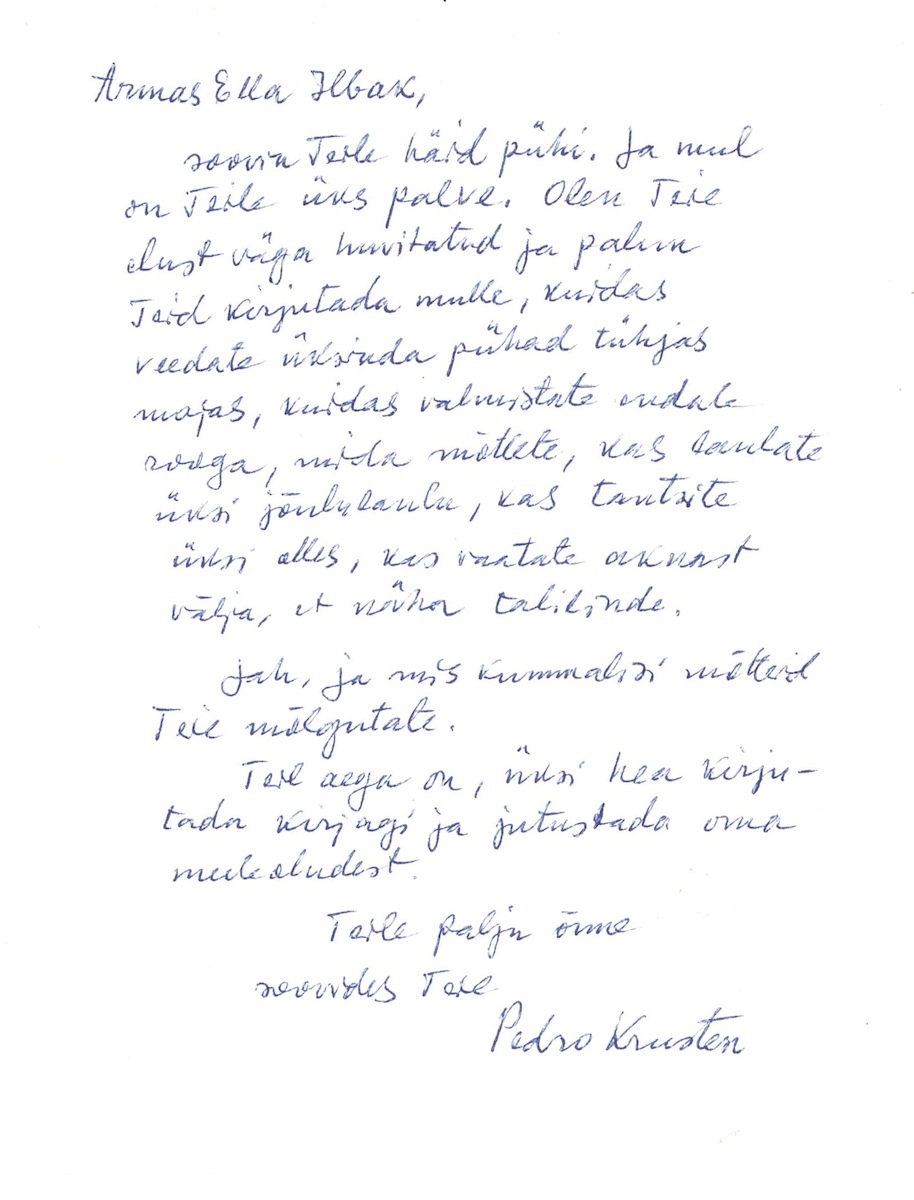 Armas Ella Ilbak,
soovin Teile häid pühi. Ja mul
on Teile üks palve. Olen Teie
elust väga huvitatud ja palun
Teid kirjutada mulle, kuidas
veedate üksinda pühad tühjas
majas, kuidas valmistate endale
sööga, mida mõtlete, kas laulate
üksi jõululaulu, kas tantsite
üksi olles, kas vaatate aknast
välja, et näha talilinde.
Jah, ja mis kummalisi mõtteid
Teie mõlgutate.
Teil aega on, üksi hea kirju-
tada kirjagi ja jutustada oma
meeleoludest.
Teile palju õnne
soovides Teie
Pedro Krusten